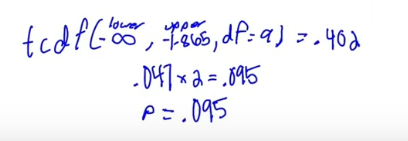 lower upper
tcdf(-∞, -1.865, df=9) = .402
.047 x 2 = .095
p = .095